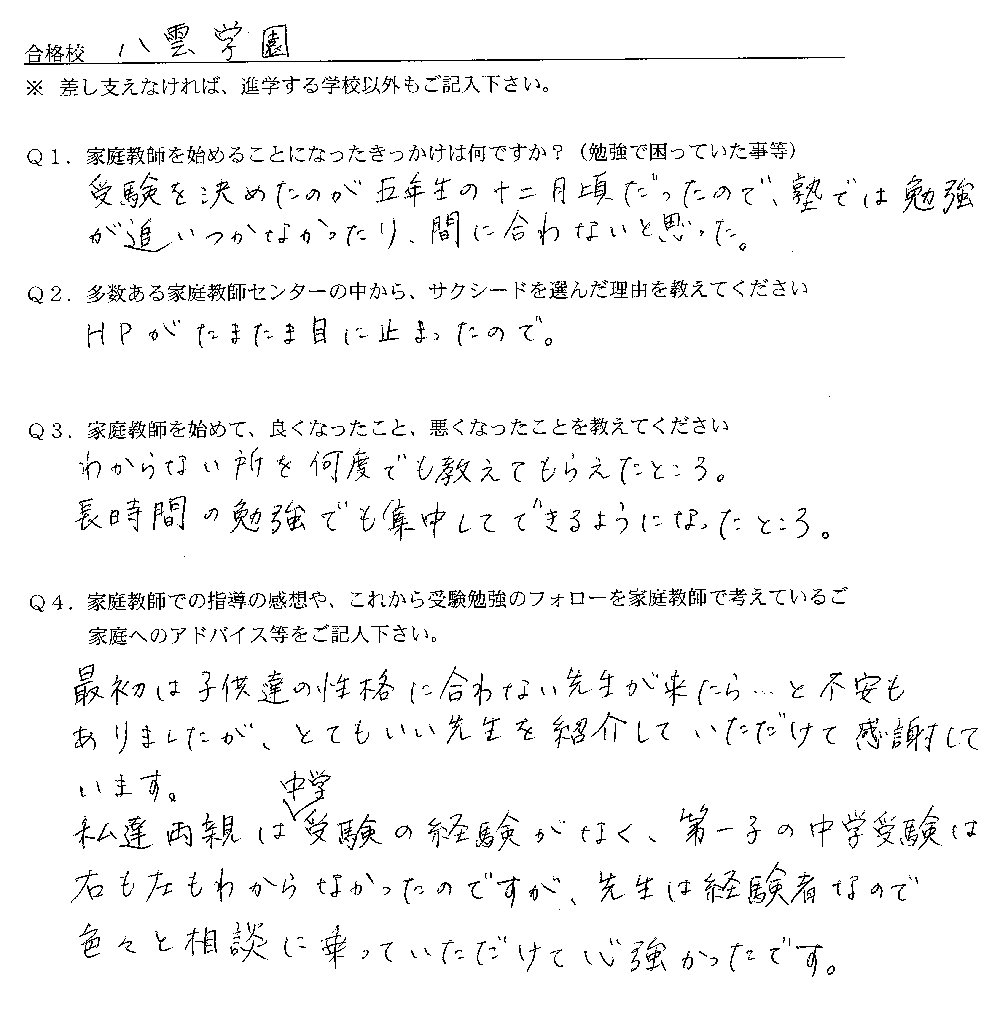 合格校 八雲学園
※ 差し支えなければ、進学する学校以外もご記入下さい。
Q1. 家庭教師を始めることになったきっかけは何ですか?(勉強で困っていた事等)
受験を決めたのが五年生の十二月頃だったので、塾では勉強
が追いつかなかったり、間に合わないと思った。
Q2. 多数ある家庭教師センターの中から、サクシードを選んだ理由を教えてください
HPがたまたま目に止まったので。
Q3. 家庭教師を始めて、良くなったこと、悪くなったことを教えてください
わからない所を何度でも教えてもらえたところ。
長時間の勉強でも集中してできるようになったところ。
Q4. 家庭教師での指導の感想や、これから受験勉強のフォローを家庭教師で考えているご
家庭へのアドバイス等をご記入下さい。
最初は子供達の性格に合わない先生が来たら…と不安も
ありましたが、とてもいい先生を紹介していただけて感謝して
います。
私達両親は中学受験の経験がなく、第一子の中学受験は
右も左もわからなかったのですが、先生は経験者なので
色々と相談に乗っていただけて心強かったです。